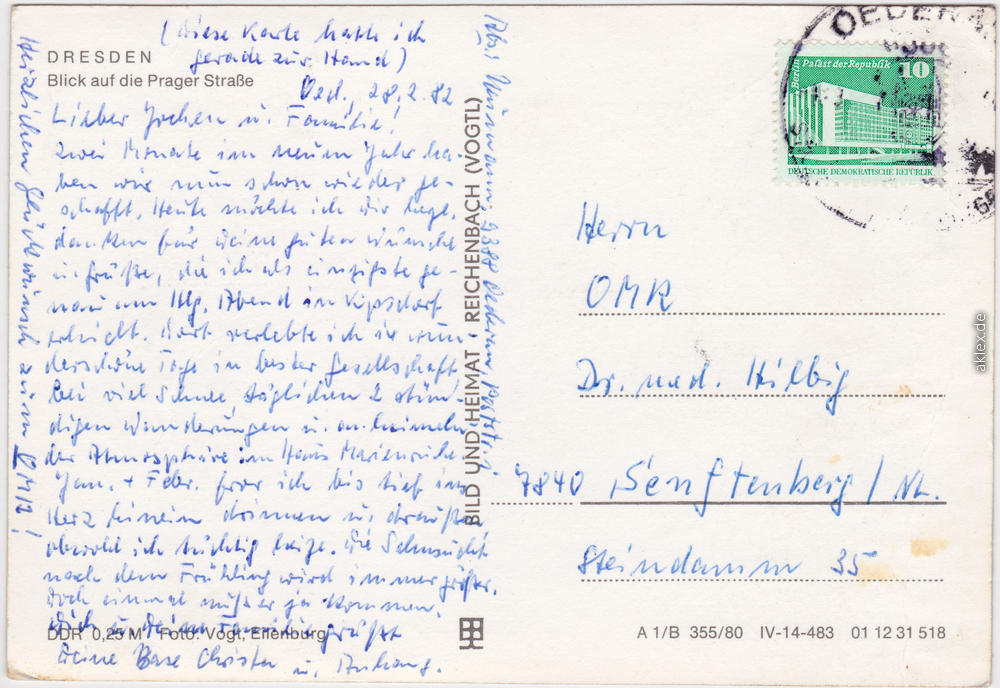 (Diese Karte hatte ich
gerade zur Hand)
DRESDEN
Blick auf die Prager Straße
Oed., 28.2.82
Lieber Jochen u. Familie!
Zwei Monate im neuen Jahr ha-
ben wir nun schon wieder ge-
schafft. Heute möchte ich Dir
danken für Deine guten Wünsche
u. Grüße, die ich als einzigste ge-
nau am Hlg. Abend in Kipsdorf
erhielt. Dort verlebte ich wun-
derschöne Tage in bester Gesellschaft
bei viel Schnee täglichen 2 stün-
digen Wanderungen u. anheimeln-
der Atmosphäre im Haus Marienruhe.
Jan. + Febr. fror ich bis tief ins
Herz hinein drinnen u. draußen
obwohl ich tüchtig heize. Die Sehnsucht
nach dem Frühling wird immer größer.
Doch einmal muß er ja kommen.
Dich u. Deine Familie grüßt
Deine Base Christa u. Anhang.
Herzlichen Glückwunsch zum OMR!
DDR 0,25 M Foto: Vogt, Eilenburg
BILD UND HEIMAT REICHENBACH (VOGTL)
Abs.: 9388 Oederan Poststr.
OEDERAN
Berlin Palast der Republik 10
DEUTSCHE DEMOKRATISCHE REPUBLIK
Herrn
OMR
Dr. med. Hilbig
7840 Senftenberg / NL.
Steindamm 35
A 1/B 355/80 IV-14-483 01 12 31 518
aklex.de